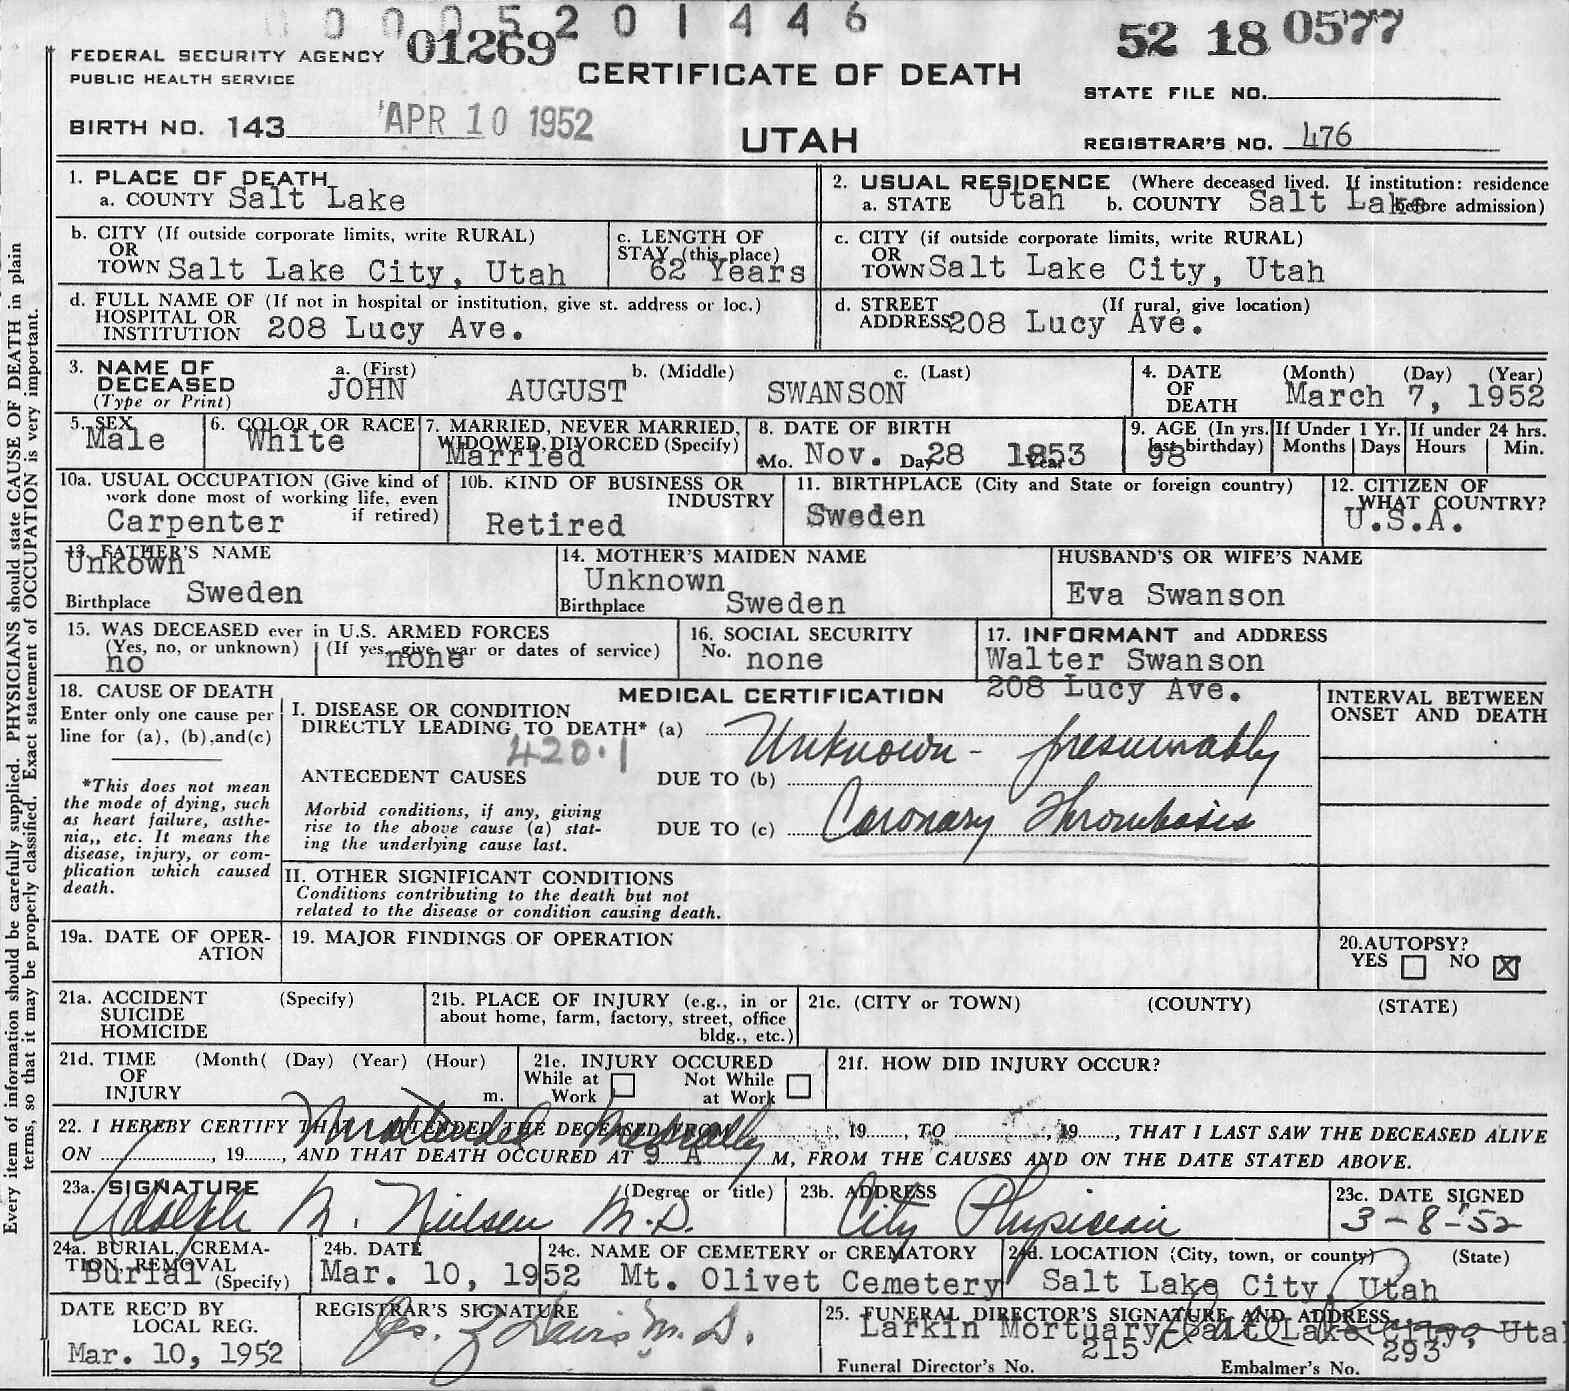 0005201446
01269
52 18 0577
FEDERAL SECURITY AGENCY
PUBLIC HEALTH SERVICE
CERTIFICATE OF DEATH
STATE FILE NO.
BIRTH NO. 143
APR 10 1952
UTAH
REGISTRAR'S NO. 476
Every item of information should be carefully supplied. PHYSICIANS should state CAUSE OF DEATH in plain
terms, so that it may be properly classified. Exact statement of OCCUPATION is very important.
1. PLACE OF DEATH
a. COUNTY Salt Lake
2. USUAL RESIDENCE (Where deceased lived. If institution: residence
before admission)
a. STATE Utah b. COUNTY Salt Lake
b. CITY (If outside corporate limits, write RURAL)
OR
TOWN Salt Lake City, Utah
c. LENGTH OF
STAY (this place)
62 Years
c. CITY (if outside corporate limits, write RURAL)
OR
TOWN Salt Lake City, Utah
d. FULL NAME OF (If not in hospital or institution, give st. address or loc.)
HOSPITAL OR
INSTITUTION 208 Lucy Ave.
d. STREET (If rural, give location)
ADDRESS 208 Lucy Ave.
3. NAME OF
DECEASED
(Type or Print)
a. (First) b. (Middle) c. (Last)
JOHN AUGUST SWANSON
4. DATE
OF
DEATH
(Month) (Day) (Year)
March 7, 1952
5. SEX
Male
6. COLOR OR RACE
White
7. MARRIED, NEVER MARRIED,
WIDOWED, DIVORCED (Specify)
Married
8. DATE OF BIRTH
Mo. Nov. Day 28 Year 1853
9. AGE (In yrs.
last birthday)
98
If Under 1 Yr.
Months Days
If under 24 hrs.
Hours Min.
10a. USUAL OCCUPATION (Give kind of
work done most of working life, even
if retired)
Carpenter
10b. KIND OF BUSINESS OR
INDUSTRY
Retired
11. BIRTHPLACE (City and State or foreign country)
Sweden
12. CITIZEN OF
WHAT COUNTRY?
U.S.A.
13. FATHER'S NAME
Unkown
Birthplace Sweden
14. MOTHER'S MAIDEN NAME
Unknown
Birthplace Sweden
HUSBAND'S OR WIFE'S NAME
Eva Swanson
15. WAS DECEASED ever in U.S. ARMED FORCES
(Yes, no, or unknown) (If yes, give war or dates of service)
no none
16. SOCIAL SECURITY
No. none
17. INFORMANT and ADDRESS
Walter Swanson
208 Lucy Ave.
18. CAUSE OF DEATH
Enter only one cause per
line for (a), (b),and(c)
*This does not mean
the mode of dying, such
as heart failure, asthe-
nia,, etc. It means the
disease, injury, or com-
plication which caused
death.
MEDICAL CERTIFICATION
INTERVAL BETWEEN
ONSET AND DEATH
I. DISEASE OR CONDITION
DIRECTLY LEADING TO DEATH* (a) Unknown - presumably
420.1
ANTECEDENT CAUSES DUE TO (b)
Morbid conditions, if any, giving
rise to the above cause (a) stat-
ing the underlying cause last.
DUE TO (c) Coronary Thrombosis
II. OTHER SIGNIFICANT CONDITIONS
Conditions contributing to the death but not
related to the disease or condition causing death.
19a. DATE OF OPER-
ATION
19. MAJOR FINDINGS OF OPERATION
20.AUTOPSY?
YES NO X
21a. ACCIDENT
SUICIDE
HOMICIDE
(Specify)
21b. PLACE OF INJURY (e.g., in or
about home, farm, factory, street, office
bldg., etc.)
21c. (CITY or TOWN) (COUNTY) (STATE)
21d. TIME
OF
INJURY
(Month( (Day) (Year) (Hour)
m.
21e. INJURY OCCURED
While at
Work
Not While
at Work
21f. HOW DID INJURY OCCUR?
22. I HEREBY CERTIFY THAT I ATTENDED THE DECEASED FROM , 19 , TO , 19 , THAT I LAST SAW THE DECEASED ALIVE
Unattended Medically
ON , 19 , AND THAT DEATH OCCURED AT 9 A M, FROM THE CAUSES AND ON THE DATE STATED ABOVE.
23a. SIGNATURE (Degree or title)
Adolph M. Nielsen M.D.
23b. ADDRESS
City Physician
23c. DATE SIGNED
3-8-52
24a. BURIAL, CREMA-
TION, REMOVAL
(Specify)
Burial
24b. DATE
Mar. 10, 1952
24c. NAME OF CEMETERY or CREMATORY
Mt. Olivet Cemetery
24d. LOCATION (City, town, or county) (State)
Salt Lake City, Utah
DATE REC'D BY
LOCAL REG.
Mar. 10, 1952
REGISTRAR'S SIGNATURE
Jas. Z Davis M.D.
25. FUNERAL DIRECTOR'S SIGNATURE AND ADDRESS
Larkin Mortuary-Salt Lake City, Utah
215 293
Funeral Director's No. Embalmer's No.